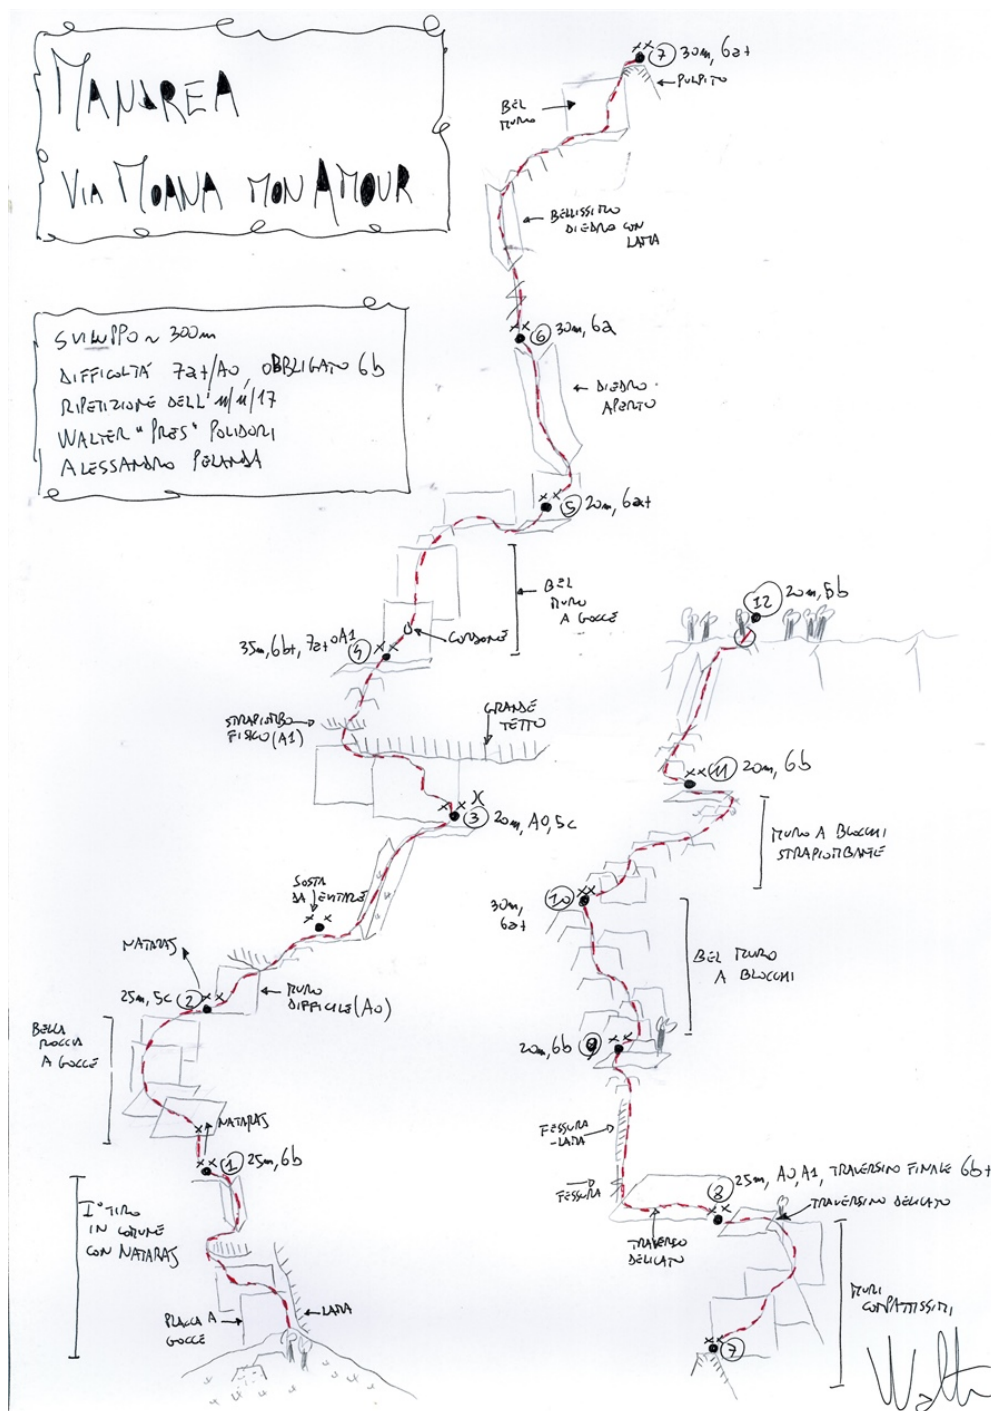 MANDREA
VIA MOANA MON AMOUR
SVILUPPO ~ 300m
DIFFICOLTÁ 7a+/A0, OBBLIGATO 6b
RIPETIZIONE DELL'11/11/17
WALTER "PRES" POLIDORI
ALESSANDRO PELANDA
7 30m, 6a+
PULPITO
BEL
MURO
BELLISSIMO
DIEDRO CON
LAMA
6 30m, 6a
DIEDRO
APERTO
5 20m, 6a+
BEL
MURO
A GOCCE
CORDONE
35m, 6b+, 7a+ o A1 4
STRAPIOMBO
FISICO (A1)
GRANDE
TETTO
3 20m, A0, 5c
SOSTA
DA EVITARE
NATARAJ
25m, 5c 2
MURO
DIFFICILE (A0)
BELLA
ROCCIA
A GOCCE
NATARAJ
1 25m, 6b
I° TIRO
IN COMUNE
CON NATARAJ
PLACCA A
GOCCE
LAMA
12 20m, 5b
11 20m, 6b
MURO A BLOCCHI
STRAPIOMBANTE
10
30m,
6a+
BEL MURO
A BLOCCHI
20m, 6b 9
FESSURA
-LAMA
FESSURA
8 25m, A0, A1, TRAVERSINO FINALE 6b+
TRAVERSINO DELICATO
TRAVERSO
DELICATO
MURI
COMPATTISSIMI
7
Walter